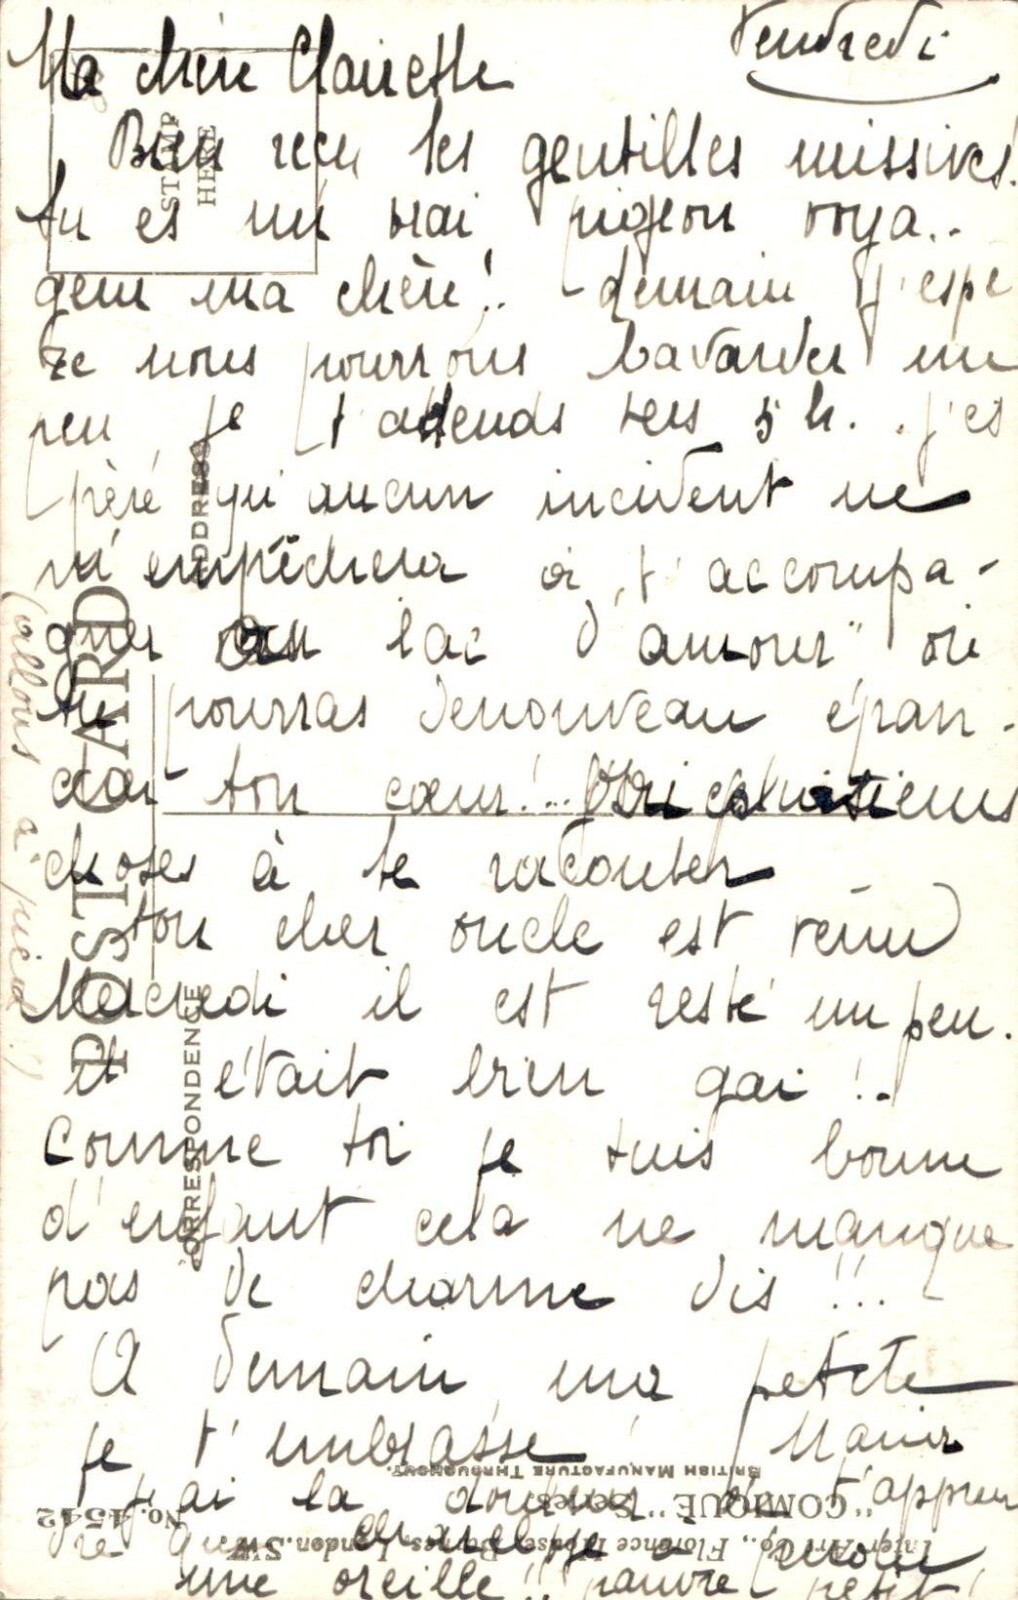 Vendredi
Ma chère Clairette
Bien reçu tes gentilles missives.
tu es un vrai pigeon voya..
geur ma chère!. demain j'espè
re nous pourrons bavarder un
peu je t'attends vers 5 h.. j'es
père qu'aucun incident ne
m'empêchera à t'accompa-
gner au lac d'amour" où
tu pourras denouveau épan-
cher ton cœur!... plusieurs
choses à te raconter
ton cher oncle est venu
Mercredi il est resté un peu.
il était bien gai!.
Comme toi je suis bonne
d'enfant cela ne manque
pas de charme dis!!..
A demain ma petite
je t'embrasse
j'ai la de t'appren
re que a perdu
une oreille!! pauvre petit!
(allons à pied!!)
STAMP
HERE
ADDRESS
POST CARD
CORRESPONDENCE
BRITISH MANUFACTURE THROUGHOUT.
"COMIQUE" Series
No. 4542
Inter-Art Co., Florence House, Barnes, London, S.W.